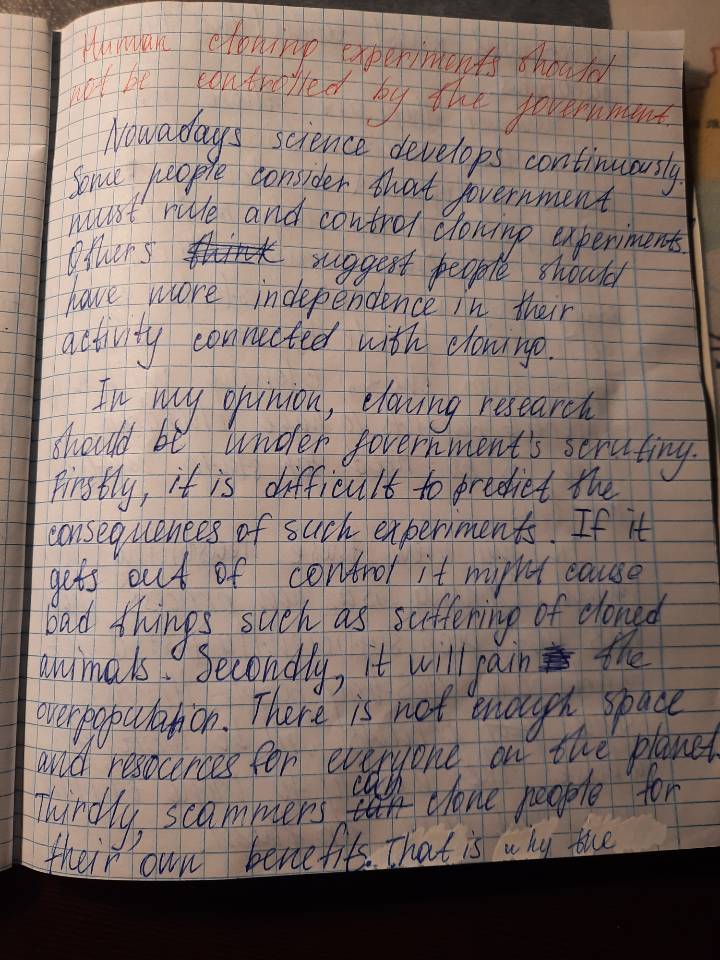 Human cloning experiments should
not be controlled by the government.
Nowadays science develops continuously.
Some people consider that government
must rule and control cloning experiments.
Others think suggest people should
have more independence in their
activity connected with cloning.
In my opinion, cloning research
should be under government's scrutiny.
Firstly, it is difficult to predict the
consequences of such experiments. If it
gets out of control it might cause
bad things such as suffering of cloned
animals. Secondly, it will gain the
overpopulation. There is not enough space
and resocerces for everyone on the planet.
Thirdly, scammers can clone people for
their own benefits. That is why the